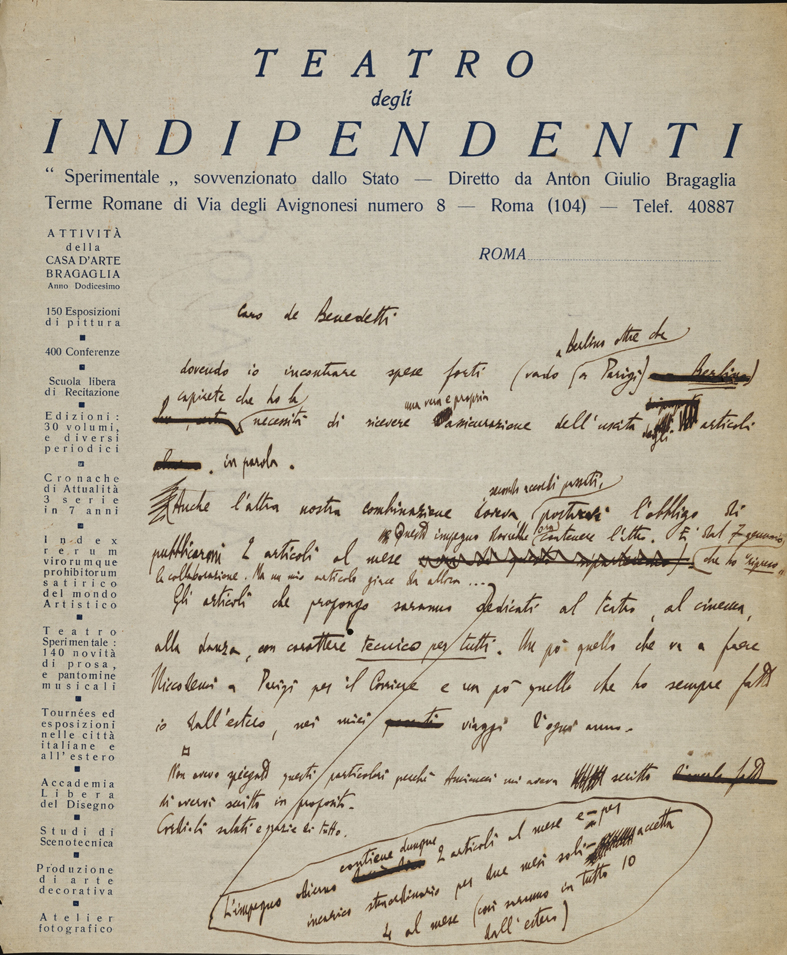 TEATRO
degli
INDIPENDENTI
“ Sperimentale „ sovvenzionato dallo Stato — Diretto da Anton Giulio Bragaglia
Terme Romane di Via degli Avignonesi numero 8 — Roma (104) — Telef. 40887
ATTIVITÀ
della
CASA D'ARTE
BRAGAGLIA
Anno Dodicesimo
150 Esposizioni
di pittura
400 Conferenze
Scuola libera
di Recitazione
Edizioni:
30 volumi,
e diversi
periodici
Cronache
di Attualità
3 serie
in 7 anni
Index
rerum
virorumque
prohibitorum
satirico
del mondo
Artistico
Teatro
Sperimentale:
140 novità
di prosa,
e pantomine
musicali
Tournées ed
esposizioni
nelle città
italiane e
all'estero
Accademia
Libera
del Disegno
Studi di
Scenotecnica
Produzione
di arte
decorativa
Atelier
fotografico
ROMA
Caro de Benedetti
a Berlino oltre che
dovendo io incontrare spese forti (vado a Parigi) Berlino)
capirete che ho la
necessità di ricevere una vera e propria assicurazione dell'uscita degli articoli
in parola.
secondo accordi
Anche l'altra nostra combinazione doveva portarvi l'obbligo di
Questo impegno dovrebbe ora contenere l'altro. E' dal 7 gennaio
pubblicarmi 2 articoli al mese che ho "ripreso"
la collaborazione. Ma un mio articolo giace da allora ...
Gli articoli che propongo saranno dedicati al teatro, al cinema,
alla danza, con carattere tecnico per tutti. Un pò quello che va a fare
Nicodemi a Parigi per il Corriere e un pò quello che ho sempre fatto
io dall'estero, nei miei viaggi d'ogni anno.
Non avevo spiegato questi particolari perché mi aveva scritto
di avervi scritto in proposito.
Cordiali saluti e grazie di tutto.
L'impegno odierno contiene dunque 2 articoli al mese e - per
incarico straordinario per due mesi soli - accetta
4 al mese (così saranno in tutto 10
dall'estero)